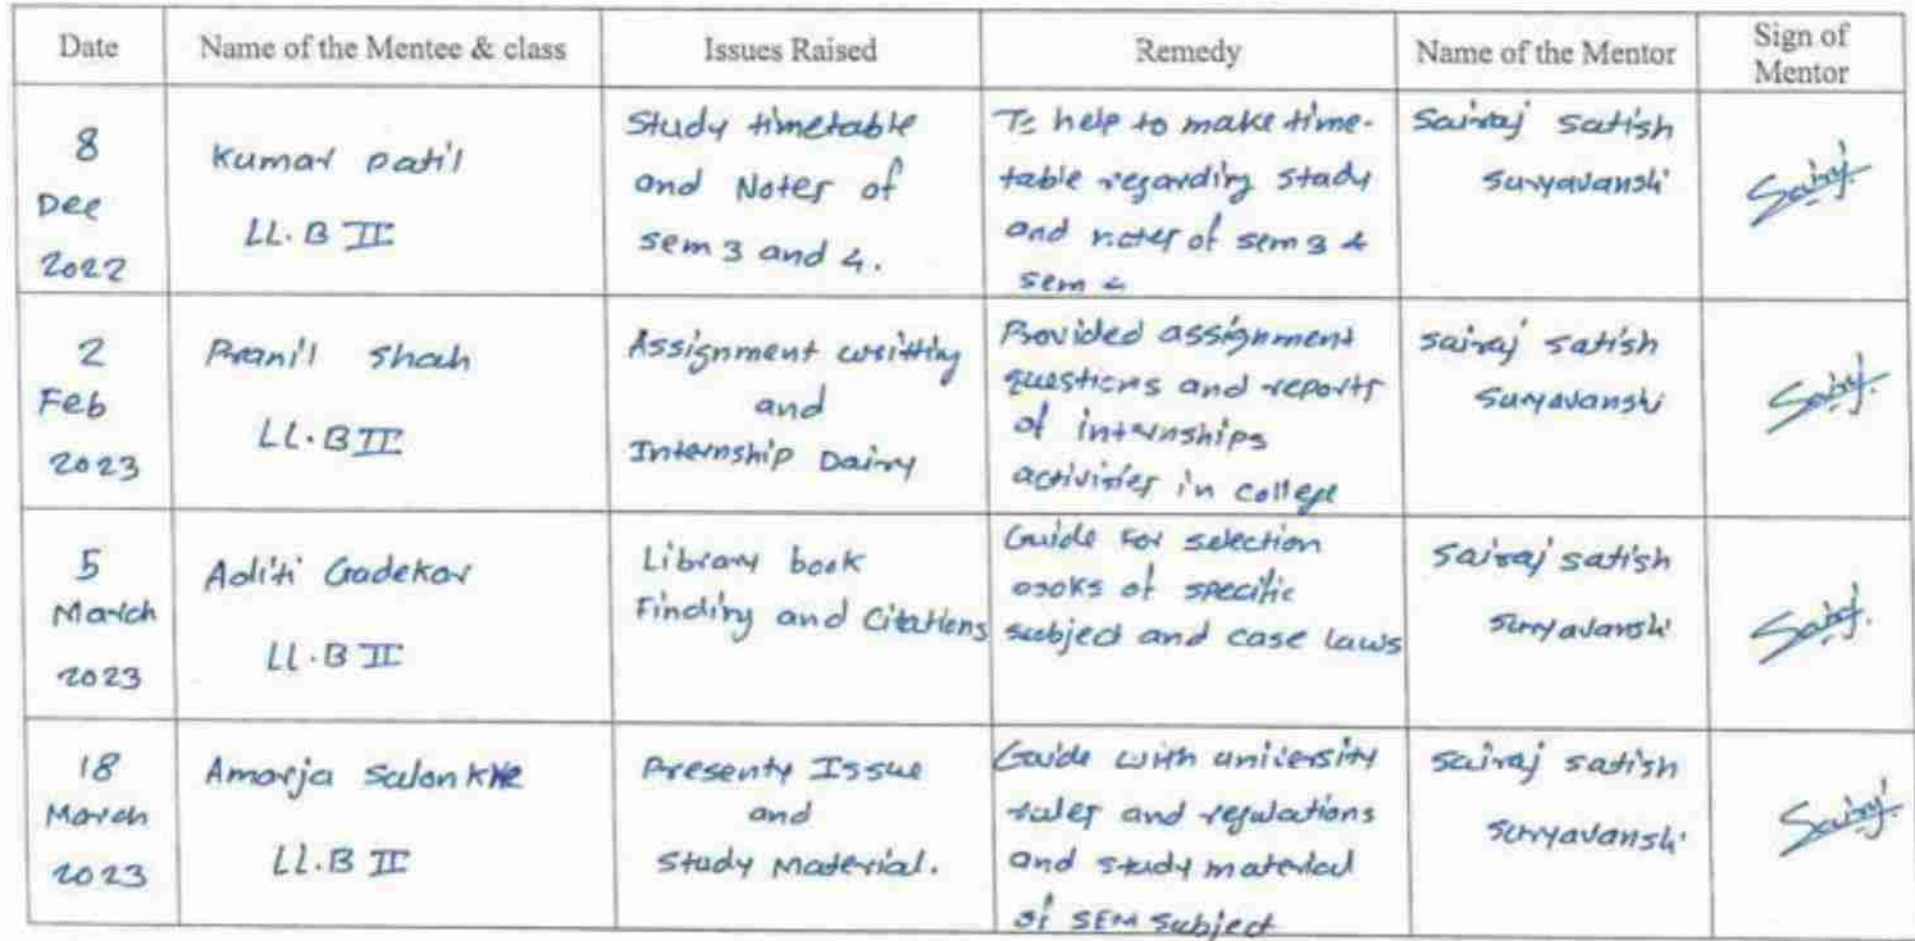 Date
Name of the Mentee & class
Issues Raised
Remedy
Name of the Mentor
Sign of
Mentor
8
Dec
2022
Kumar Patil
LL.B II
Study timetable
and Notes of
sem 3 and 4.
To help to make time-
table regarding study
and notes of sem 3 &
sem 4
Sairaj Satish
Suryavanshi
Sairaj.
2
Feb
2023
Pranil Shah
LL.B II
Assignment writting
and
Internship Dairy
Provided assignment
questions and reports
of internships
activities in college
Sairaj Satish
Suryavanshi
Sairaj.
5
March
2023
Aditi Gadekar
LL.B II
Library book
Finding and Citations
Guide for selection
books of specific
subject and case laws
Sairaj Satish
Suryavanshi
Sairaj.
18
March
2023
Amarja Salonkhe
LL.B II
Presenty Issue
and
Study Material.
Guide with university
rules and regulations
and study material
of SEM Subject
Sairaj Satish
Suryavanshi
Sairaj.